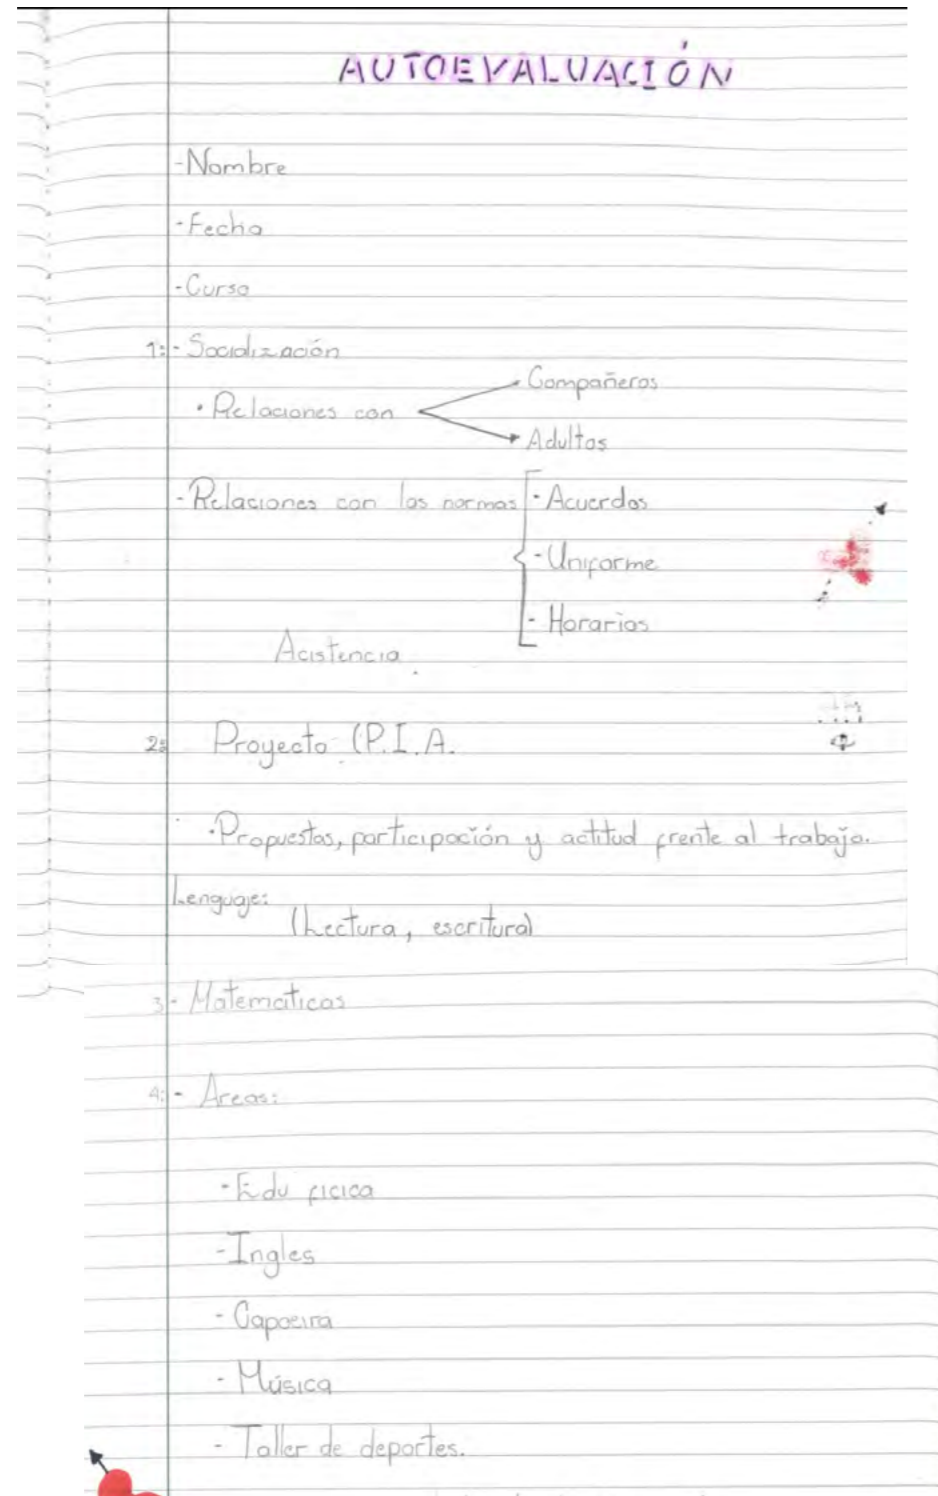 AUTOEVALUACIÓN
-Nombre
-Fecha
-Curso
1:- Socialización
• Relaciones con
- Compañeros
- Adultos
-Relaciones con las normas
- Acuerdos
- Uniforme
- Horarios
Acistencia
2: Proyecto (P.I.A.
•Propuestas, participación y actitud frente al trabajo.
Lenguaje:
(Lectura, escritura)
3- Matemáticas
4:- Áreas:
-Edu ficica
-Ingles
- Capoeira
- Música
- Taller de deportes.